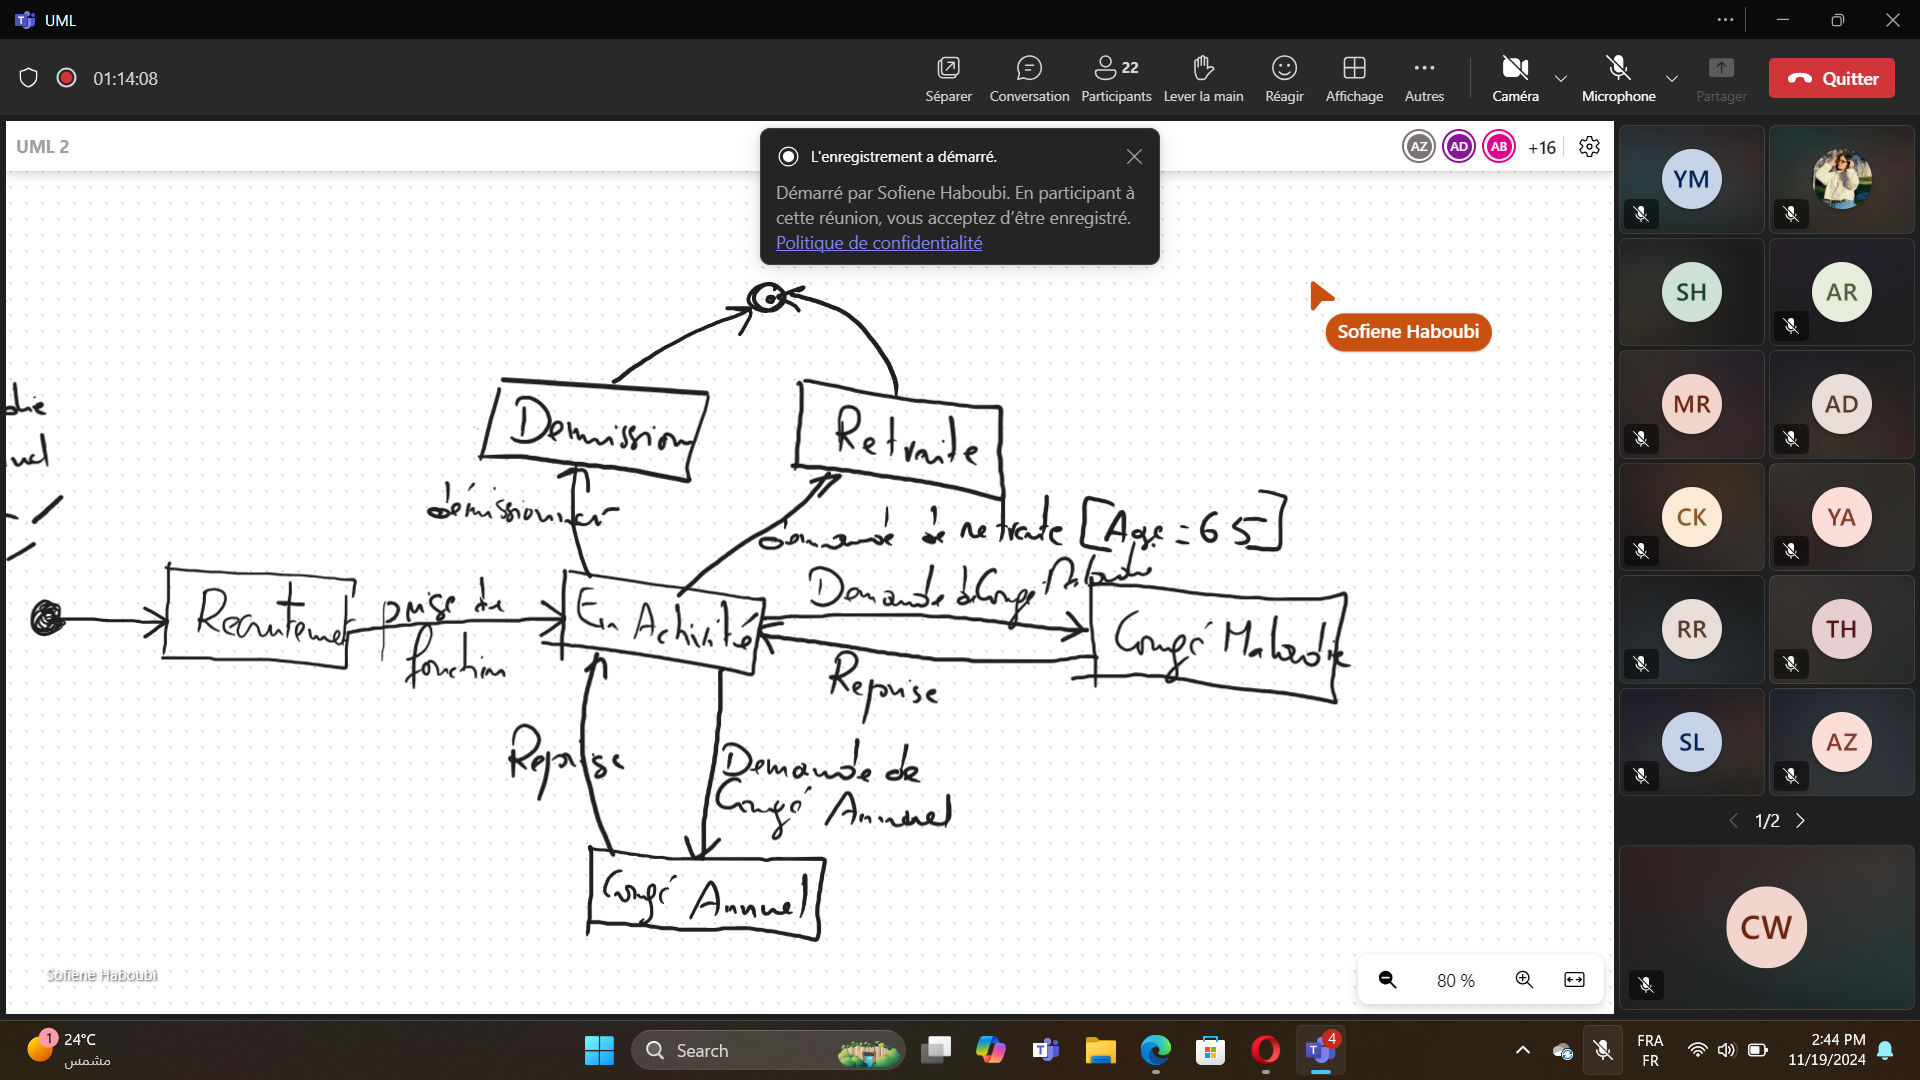 UML
01:14:08
Séparer
Conversation
22
Participants
Lever la main
Réagir
Affichage
Autres
Caméra
Microphone
Partager
Quitter
UML 2
L'enregistrement a démarré.
Démarré par Sofiene Haboubi. En participant à
cette réunion, vous acceptez d'être enregistré.
Politique de confidentialité
AZ
AD
AB
+16
Sofiene Haboubi
Demission
Retraite
démissionner
demande de retraite [Age = 65]
Recrutement
prise de
fonction
En Activité
Demande
Congé Maladie
Reprise
Reprise
Demande de
Congé Annuel
Congé Annuel
Sofiene Haboubi
80 %
YM
SH
AR
MR
AD
CK
YA
RR
TH
SL
AZ
1/2
CW
1
24°C
مشمس
Search
4
FRA
FR
2:44 PM
11/19/2024